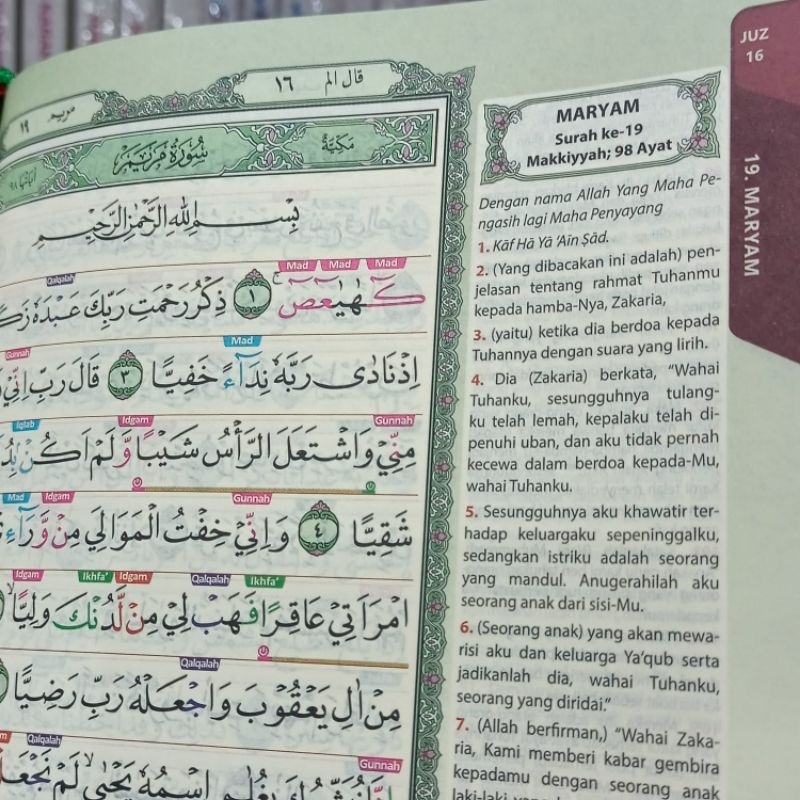 JUZ
16
19. MARYAM
قال الم
١٦
مريم
١٩
مَكِّيَّةٌ
سُوْرَةُ مَرْيَمَ
بِسْمِ اللّٰهِ الرَّحْمٰنِ الرَّحِيْمِ
Mad Mad Mad Qalqalah
كۤهٰيٰعۤصۤ ۚ ١ ذِكْرُ رَحْمَتِ رَبِّكَ عَبْدَهٗ
Mad Gunnah
اِذْ نَادٰى رَبَّهٗ نِدَاۤءً خَفِيًّا ٣ قَالَ رَبِّ اِنِّيْ
Gunnah Idgam Iqlab
مِنِّيْ وَاشْتَعَلَ الرَّأْسُ شَيْبًا وَّلَمْ اَكُنْ
Gunnah Idgam Mad
شَقِيًّا ٤ وَاِنِّيْ خِفْتُ الْمَوَالِيَ مِنْ وَّرَاۤءِ
Ikhfa' Qalqalah Idgam Ikhfa' Idgam
امْرَاَتِيْ عَاقِرًا فَهَبْ لِيْ مِنْ لَّدُنْكَ وَلِيًّا
Qalqalah
مِنْ اٰلِ يَعْقُوْبَ وَاجْعَلْهُ رَبِّ رَضِيًّا
Gunnah Qalqalah
اسْمُهٗ يَحْيٰى لَمْ نَجْعَلْ
MARYAM
Surah ke-19
Makkiyyah; 98 Ayat
Dengan nama Allah Yang Maha Pe-
ngasih lagi Maha Penyayang
1. Kāf Hā Yā 'Aīn Ṣād.
2. (Yang dibacakan ini adalah) pen-
jelasan tentang rahmat Tuhanmu
kepada hamba-Nya, Zakaria,
3. (yaitu) ketika dia berdoa kepada
Tuhannya dengan suara yang lirih.
4. Dia (Zakaria) berkata, "Wahai
Tuhanku, sesungguhnya tulang-
ku telah lemah, kepalaku telah di-
penuhi uban, dan aku tidak pernah
kecewa dalam berdoa kepada-Mu,
wahai Tuhanku.
5. Sesungguhnya aku khawatir ter-
hadap keluargaku sepeninggalku,
sedangkan istriku adalah seorang
yang mandul. Anugerahilah aku
seorang anak dari sisi-Mu.
6. (Seorang anak) yang akan mewa-
risi aku dan keluarga Ya'qub serta
jadikanlah dia, wahai Tuhanku,
seorang yang diridai."
7. (Allah berfirman,) "Wahai Zaka-
ria, Kami memberi kabar gembira
kepadamu dengan seorang anak